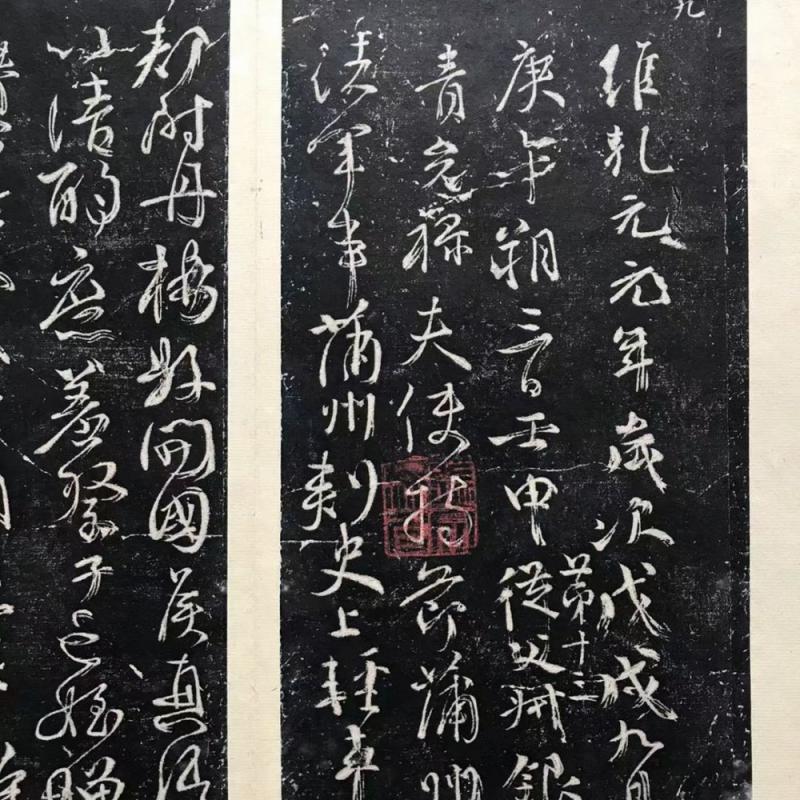 九
維乾元元年歲次戊戌九月
庚午朔三日壬申從父第十三叔銀
青光祿夫使持節蒲州
諸軍事蒲州刺史上輕車
都尉丹楊縣開國侯真卿
以清酌庶羞祭于亡姪贈